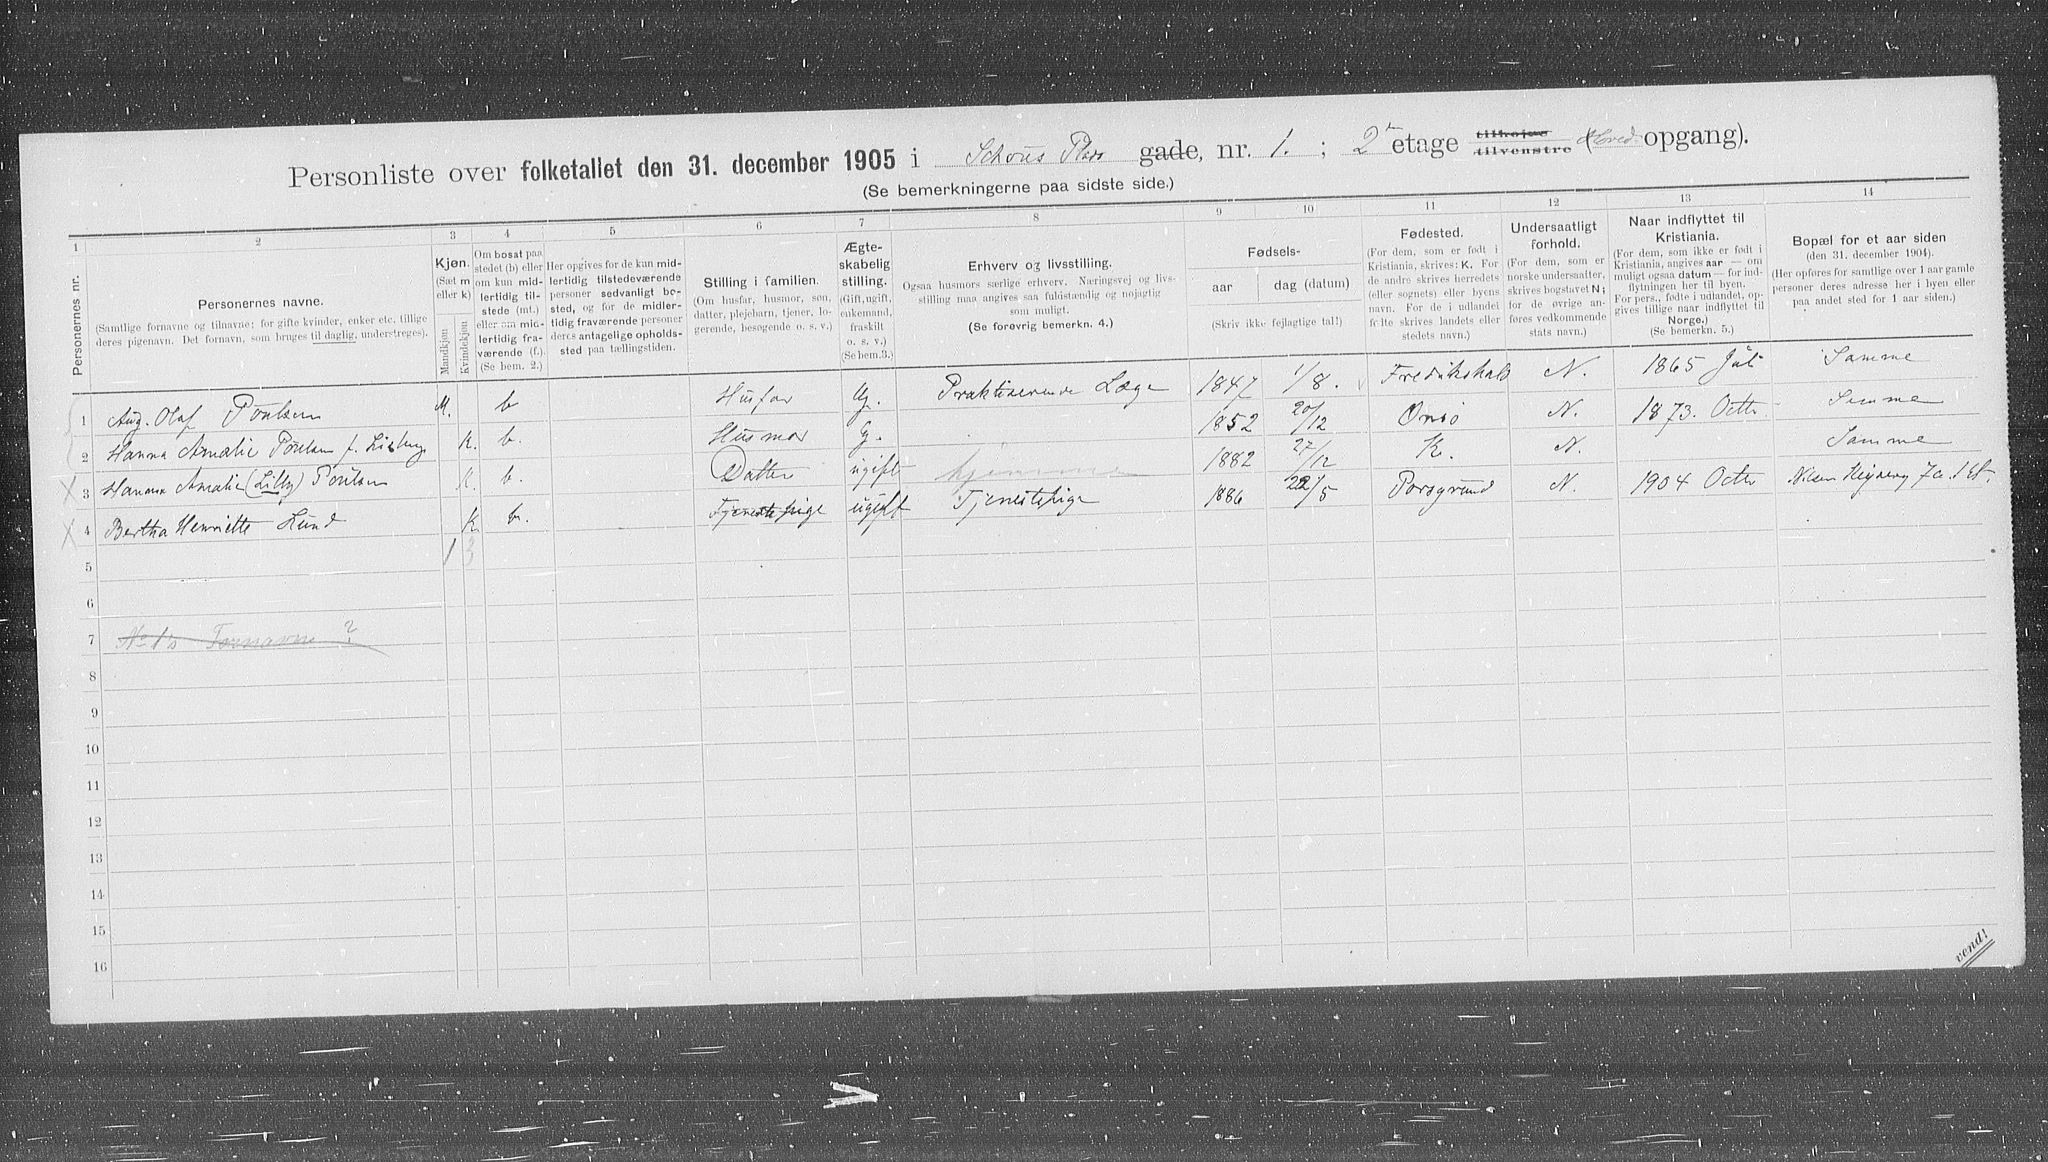 Personliste over folketallet den 31. december 1905 i Schous Plads gade, nr. 1. ; 2 etage tilhøire tilvenstre (Hoved opgang).
(Se bemerkningerne paa sidste side.)
1 2 3 4 5 6 7 8 9 10 11 12 13 14
Personernes nr.
Personernes navne.
(Samtlige fornavne og tilnavne; for gifte kvinder, enker etc. tillige
deres pigenavn. Det fornavn, som bruges til daglig, understreges).
Kjøn.
(Sæt m
eller k)
Mandkjøn
Kvindekjøn
Om bosat paa
stedet (b) eller
om kun mid-
lertidig til-
stede (mt.)
eller om mid-
lertidig fra-
værende (f.).
(Se bem. 2.)
Her opgives for de kun mid-
lertidig tilstedeværende
personer sedvanlig bo-
sted, og for de midler-
tidig fraværende personer
deres antagelige opholds-
sted paa tællingstiden.
Stilling i familien.
(Om husfar, husmor, søn,
datter, plejebarn, tjener, lo-
gerende, besøgende o. s. v.)
Ægte-
skabelig
stilling.
(Gift, ugift,
enkemand,
fraskilt
o. s. v.)
(Se bem.3.)
Erhverv og livsstilling.
Ogsaa husmors særlige erhverv. Næringsvej og livs-
stilling maa angives saa fuldstændig og nøjagtig
som muligt.
(Se forøvrig bemerkn. 4.)
Fødsels-
aar dag (datum)
(Skriv ikke fejlagtige tal!)
Fødested.
(For dem, som er født i
Kristiania, skrives: K. For
de andre skrives herredets
(eller sognets) eller byens
navn. For de i udlandet
fødte skrives landets eller
stedets navn.)
Undersaatligt
forhold.
(For dem, som er
norske undersaatter,
skrives bogstavet N;
for de øvrige an-
føres vedkommende
stats navn.)
Naar indflyttet til
Kristiania.
(For dem, som ikke er født i
Kristiania, angives aar — om
muligt ogsaa datum — for ind-
flytningen her til byen.
For pers., fødte i udlandet, op-
gives tillige naar indflyttet til
Norge.)
(Se bemerkn. 5.)
Bopæl for et aar siden
(den 31. december 1904).
(Her opføres for samtlige over 1 aar gamle
personer deres adresse her i byen eller
paa andet sted for 1 aar siden.)
1 Aug. Olaf Poulsen M. b Husfar g. Praktiserende Læge 1847 1/8. Fredrikshald N. 1865 Juli Samme
2 Hanna Amalie Poulsen f. k. b. Husmor g. 1852 20/12 Onsø N. 1873. Octbr. Samme
3 Hanna Amalie (Lilly) Poulsen k. b. Datter ugift hjemme 1882 27/12 K. N. Samme
4 Bertha Henriette Lund k. b. Tjenestepige ugift Tjenestepige 1886 /5 Porsgrund N. 1904 Octbr 7 1 Et.
1 3
5
6
7 No 1s Fornavne ?
8
9
10
11
12
13
14
15
16
vend!